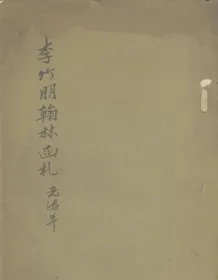 李竹朋翰林函札 光緒年